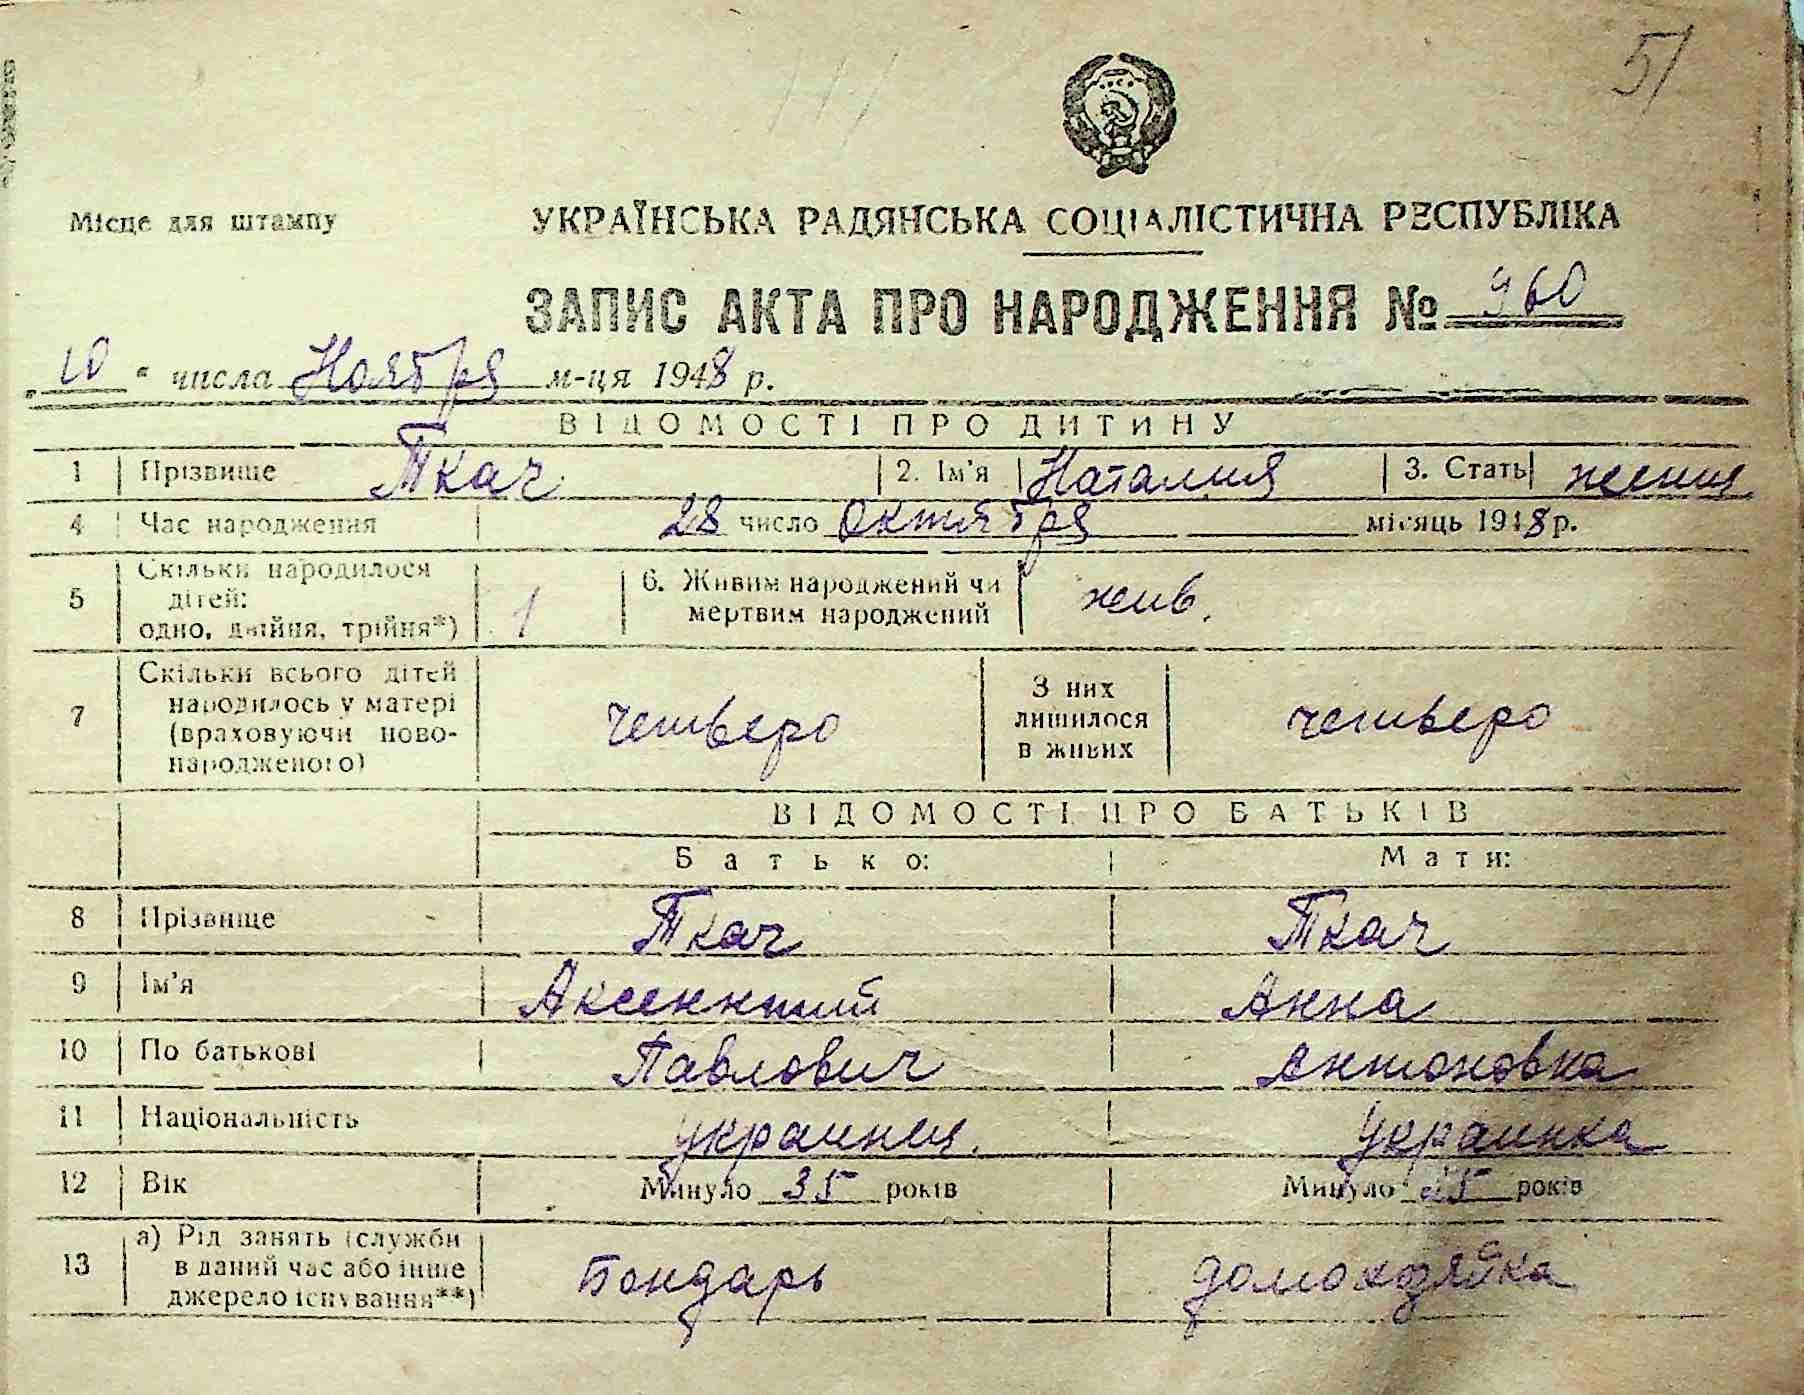 51
Місце для штампу
УКРАЇНСЬКА РАДЯНСЬКА СОЦІАЛІСТИЧНА РЕСПУБЛІКА
ЗАПИС АКТА ПРО НАРОДЖЕННЯ № 960
„10“ числа Ноября м-ця 1948 р.
ВІДОМОСТІ ПРО ДИТИНУ
1 Прізвище Ткач 2. Ім'я Наталия 3. Стать женщ.
4 Час народження 28 число Октября місяць 1948 р.
5 Скільки народилося дітей: одно, двійня, трійня*) 1 6. Живим народжений чи мертвим народжений жив.
7 Скільки всього дітей народилось у матері (враховуючи новонародженого) четверо З них лишилося в живих четверо
ВІДОМОСТІ ПРО БАТЬКІВ
Батько: Мати:
8 Прізвище Ткач Ткач
9 Ім'я Аксентий Анна
10 По батькові Павлович Антоновна
11 Національність украинец. украинка
12 Вік Минуло 35 років Минуло 35 років
13 а) Рід занять (служби в даний час або інше джерело існування**) Бондарь домохозяйка